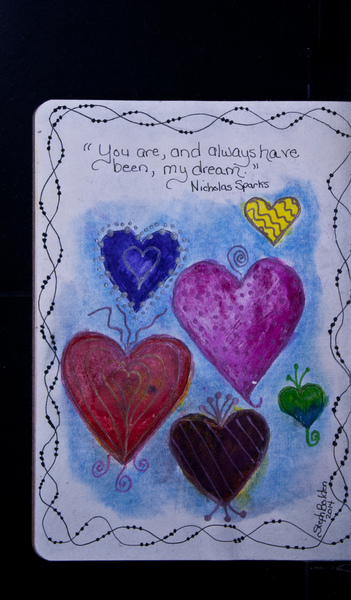 "You are, and always have
been, my dream."
Nicholas Sparks
Steph Baldon
2014